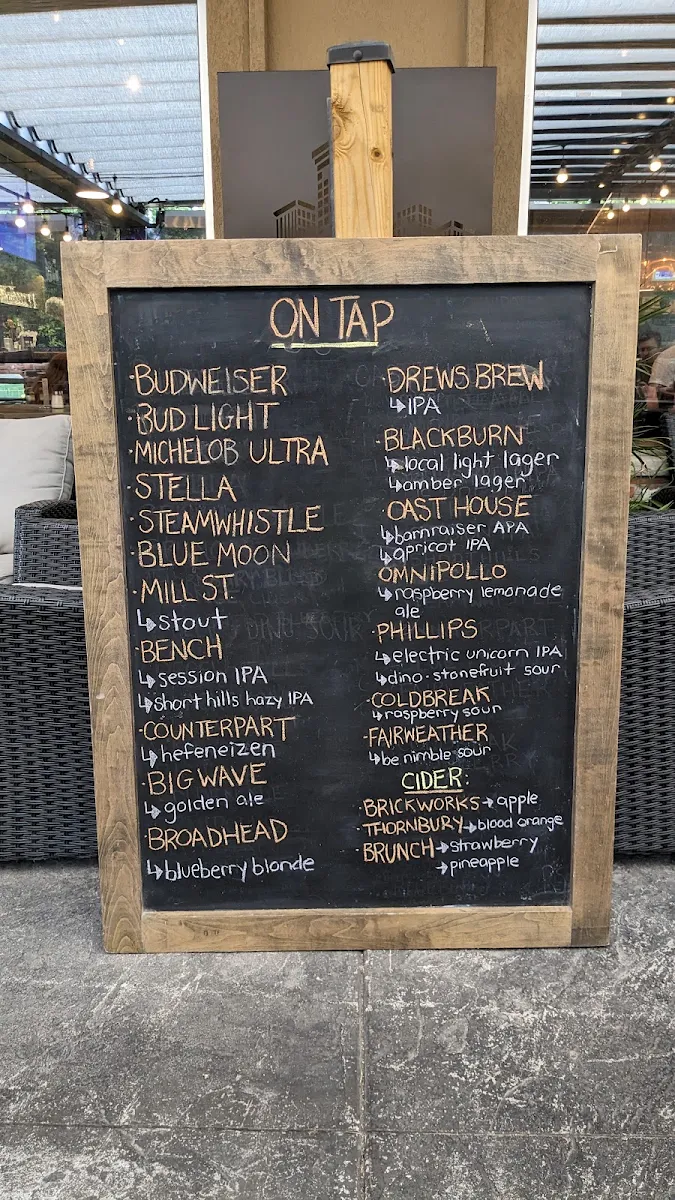 ON TAP
·BUDWEISER
·BUD LIGHT
·MICHELOB ULTRA
·STELLA
·STEAMWHISTLE
·BLUE MOON
·MILL ST.
↳stout
·BENCH
↳session IPA
↳short hills hazy IPA
·COUNTERPART
↳hefeneizen
·BIG WAVE
↳golden ale
·BROADHEAD
↳blueberry blonde
·DREWS BREW
↳IPA
·BLACKBURN
↳local light lager
↳amber lager
·OAST HOUSE
↳barnraiser APA
↳apricot IPA
OMNIPOLLO
↳raspberry lemonade
ale
·PHILLIPS
↳electric unicorn IPA
↳dino·stonefruit sour
·COLDBREAK
↳raspberry sour
·FAIRWEATHER
↳be nimble sour
CIDER:
·BRICKWORKS→apple
·THORNBURY→blood orange
·BRUNCH→strawberry
→pineapple